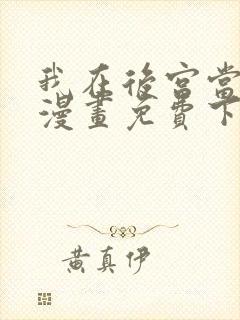 我在後宮當
漫畫免費下
黃真伊